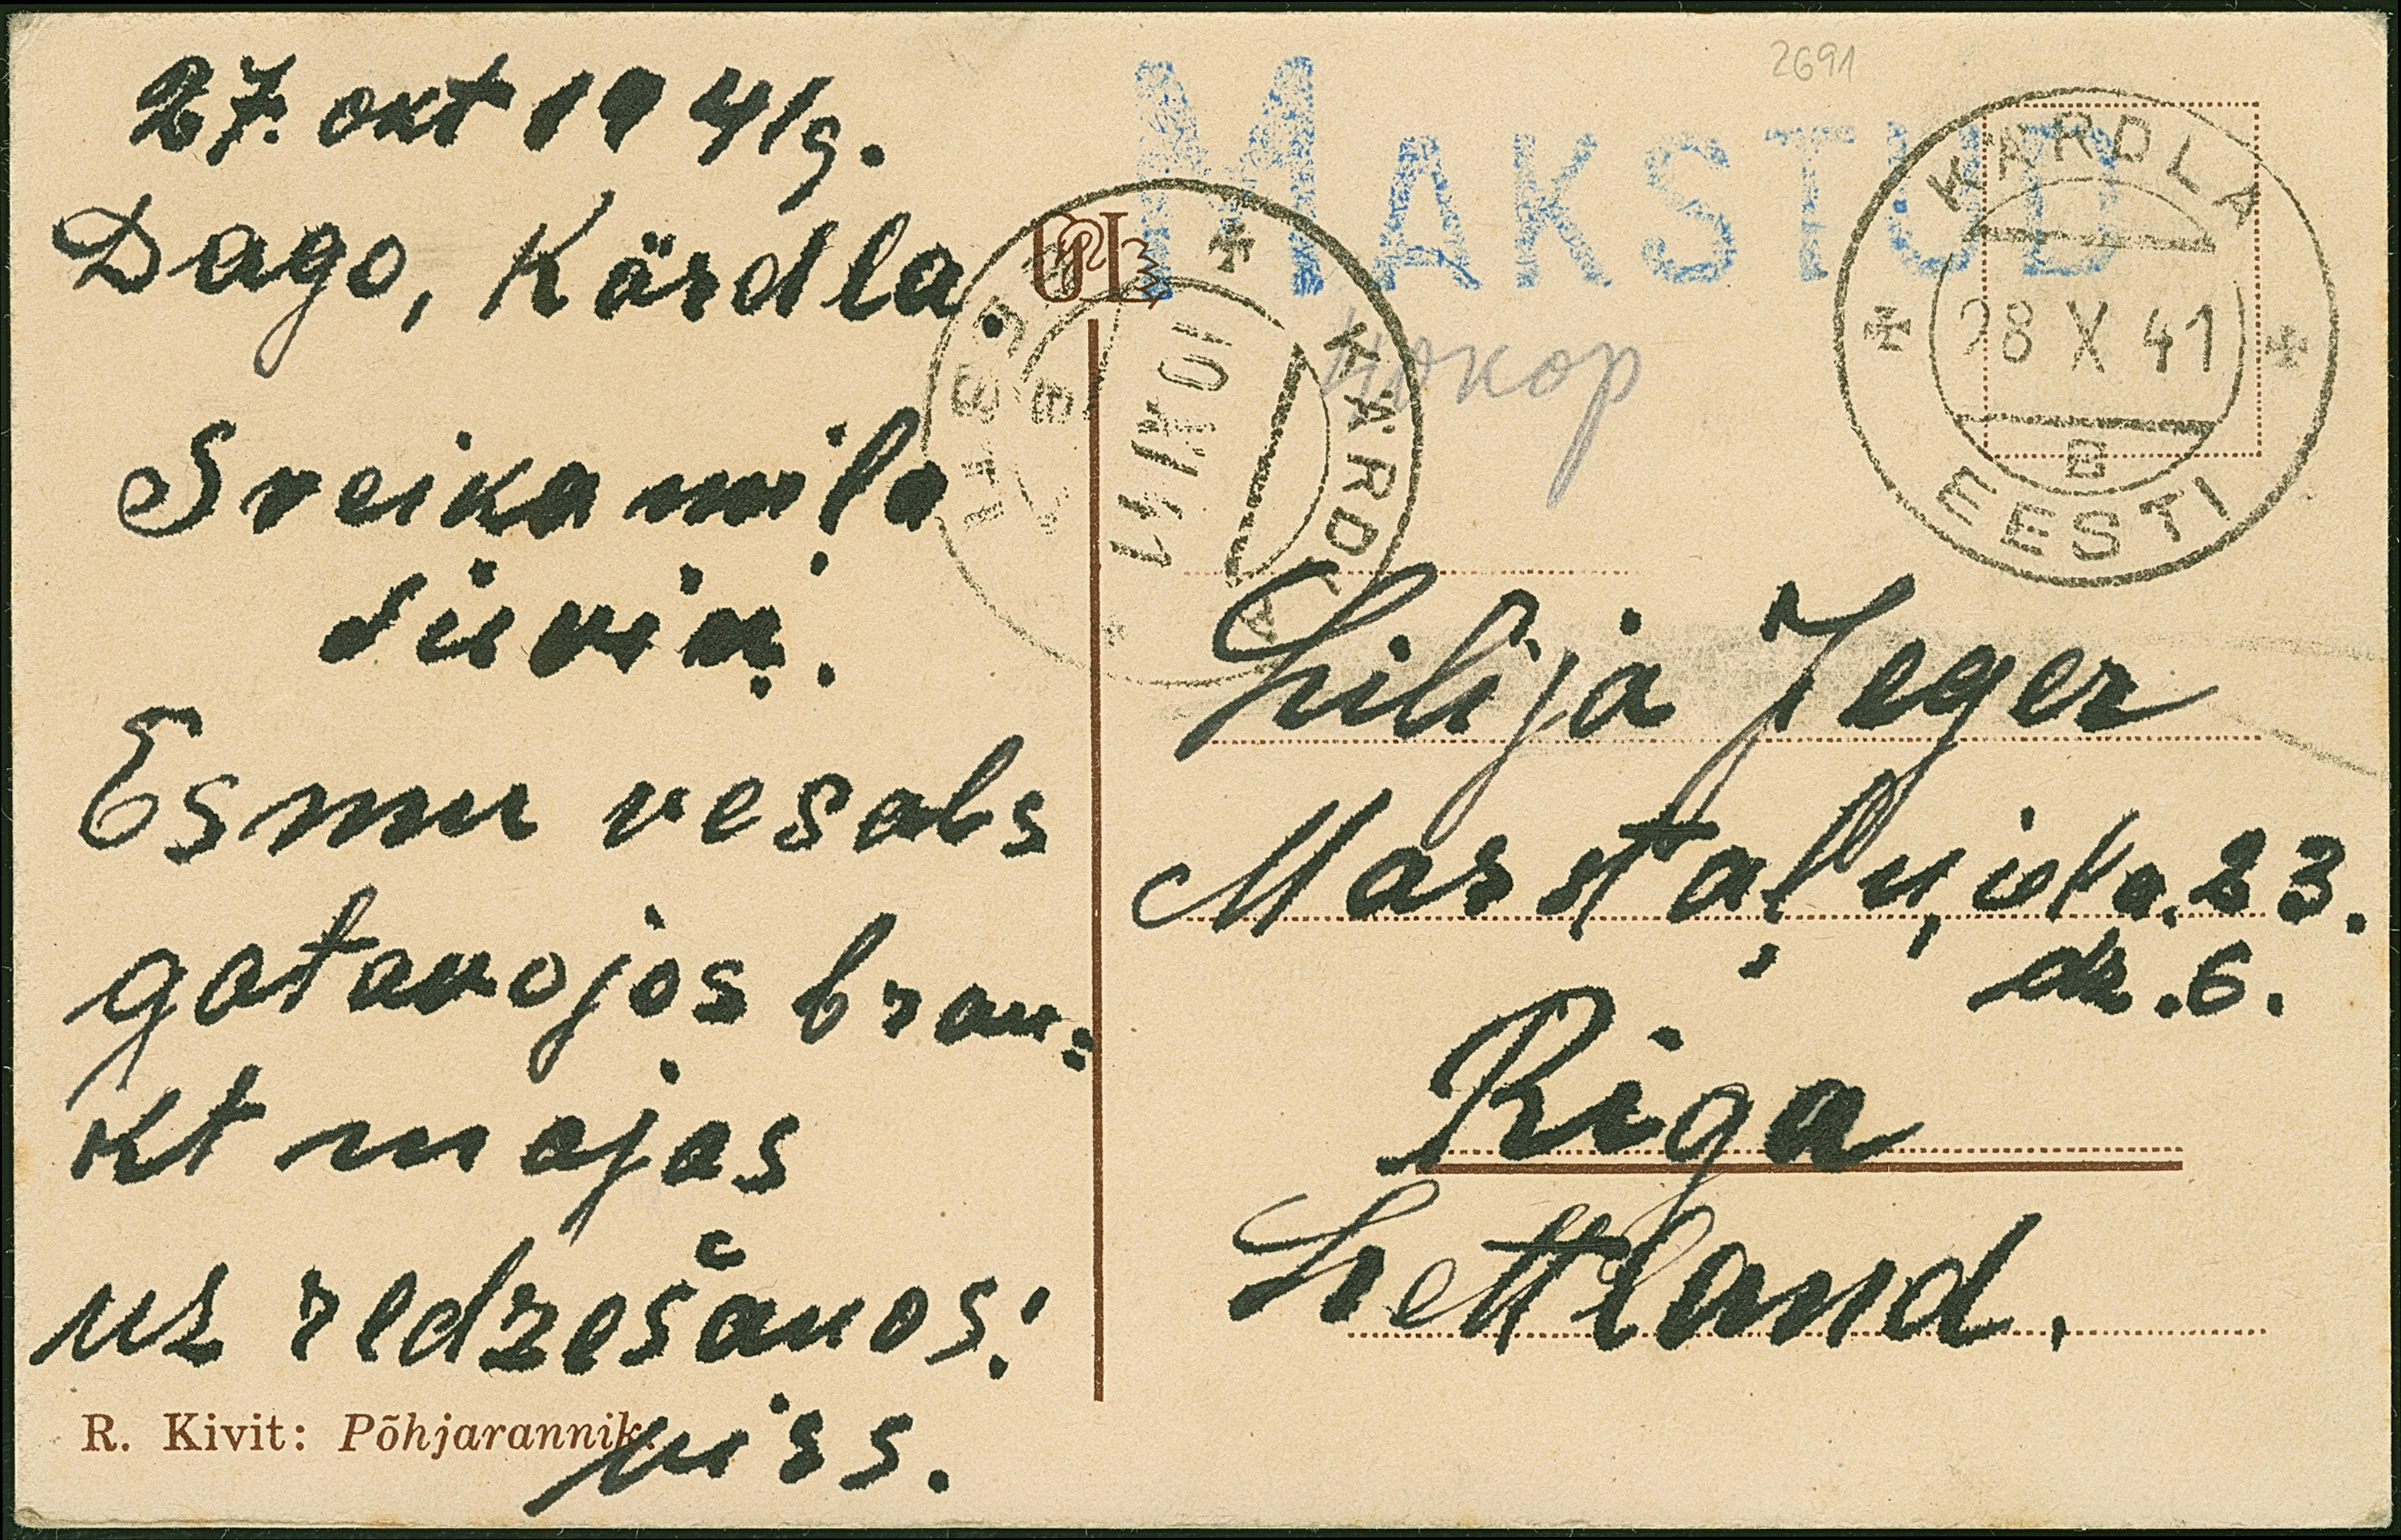 27. okt 1941g.
Dago, Kärdla.
Sveika mīļa
sieviņ.
Esmu vesals
gatavojos brau=
kt mājās
uz redzešanos!
viss.
R. Kivit: Põhjarannik.
2691
MAKSTUD
KÄRDLA
28 X 41
B
EESTI
KÄRDLA
EESTI
Lilija Jeger
Marstaļu iela. 23.
dz. 6.
Riga
Lettland.